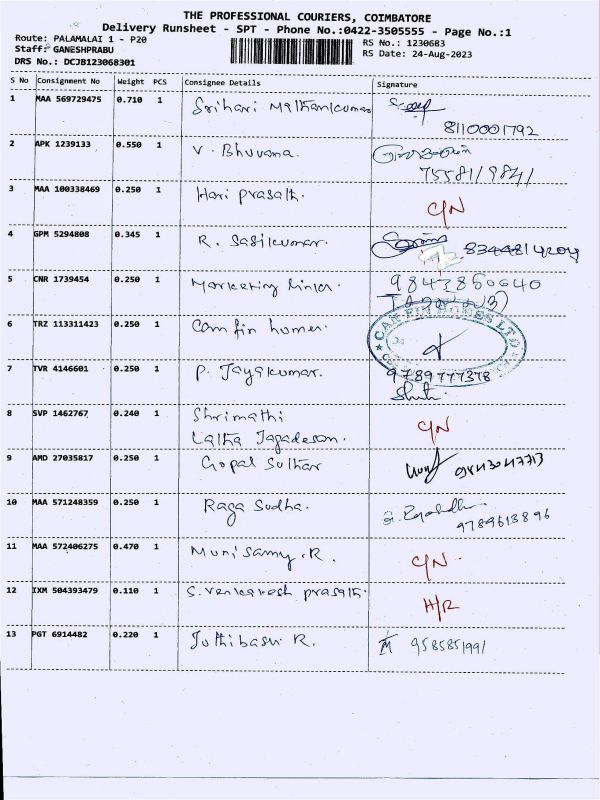 THE PROFESSIONAL COURIERS, COIMBATORE
Delivery Runsheet - SPT - Phone No.:0422-3505555 - Page No.:1
Route: PALAMALAI 1 - P20
RS No.: 1230683
Staff: GANESHPRABU
RS Date: 24-Aug-2023
DRS No.: DCJB123068301
S No Consignment No Weight PCS Consignee Details Signature
1 MAA 569729475 0.710 1 Srihari Mathankumar
8110001792
2 APK 1239133 0.550 1 V. Bhuvana.
7558119841
3 MAA 100338469 0.250 1 Hari prasath.
C/N
4 GPM 5294808 0.345 1 R. Sasikumar.
5 CNR 1739454 0.250 1 Marketing 9843850640
6 TRZ 113311423 0.250 1 Camfin homes.
CAN FIN HOMES LTD
7 TVR 4146601 0.250 1 P. Jayakumar. 9789777378
8 SVP 1462767 0.240 1 Shrimathi
Laltha Jagadesan. C/N
9 AMD 27035817 0.250 1 Gopal Suthar 9843047713
10 MAA 571248359 0.250 1 Raga Sudha.
9789613896
11 MAA 572406275 0.470 1 Munisamy.R. C/N.
12 IXM 504393479 0.110 1 S. Venkatesh prasath.
H/R
13 PGT 6914482 0.220 1 Jothibasu R. 9585851991